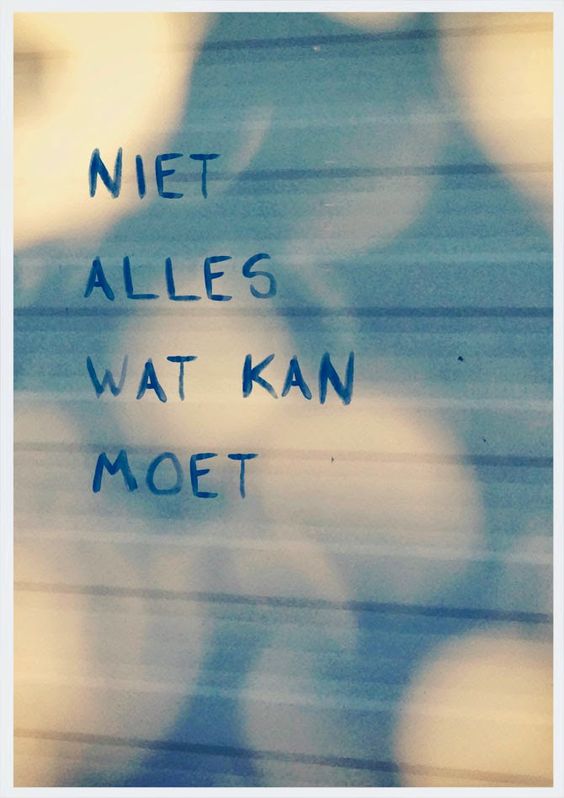 NIET
ALLES
WAT KAN
MOET